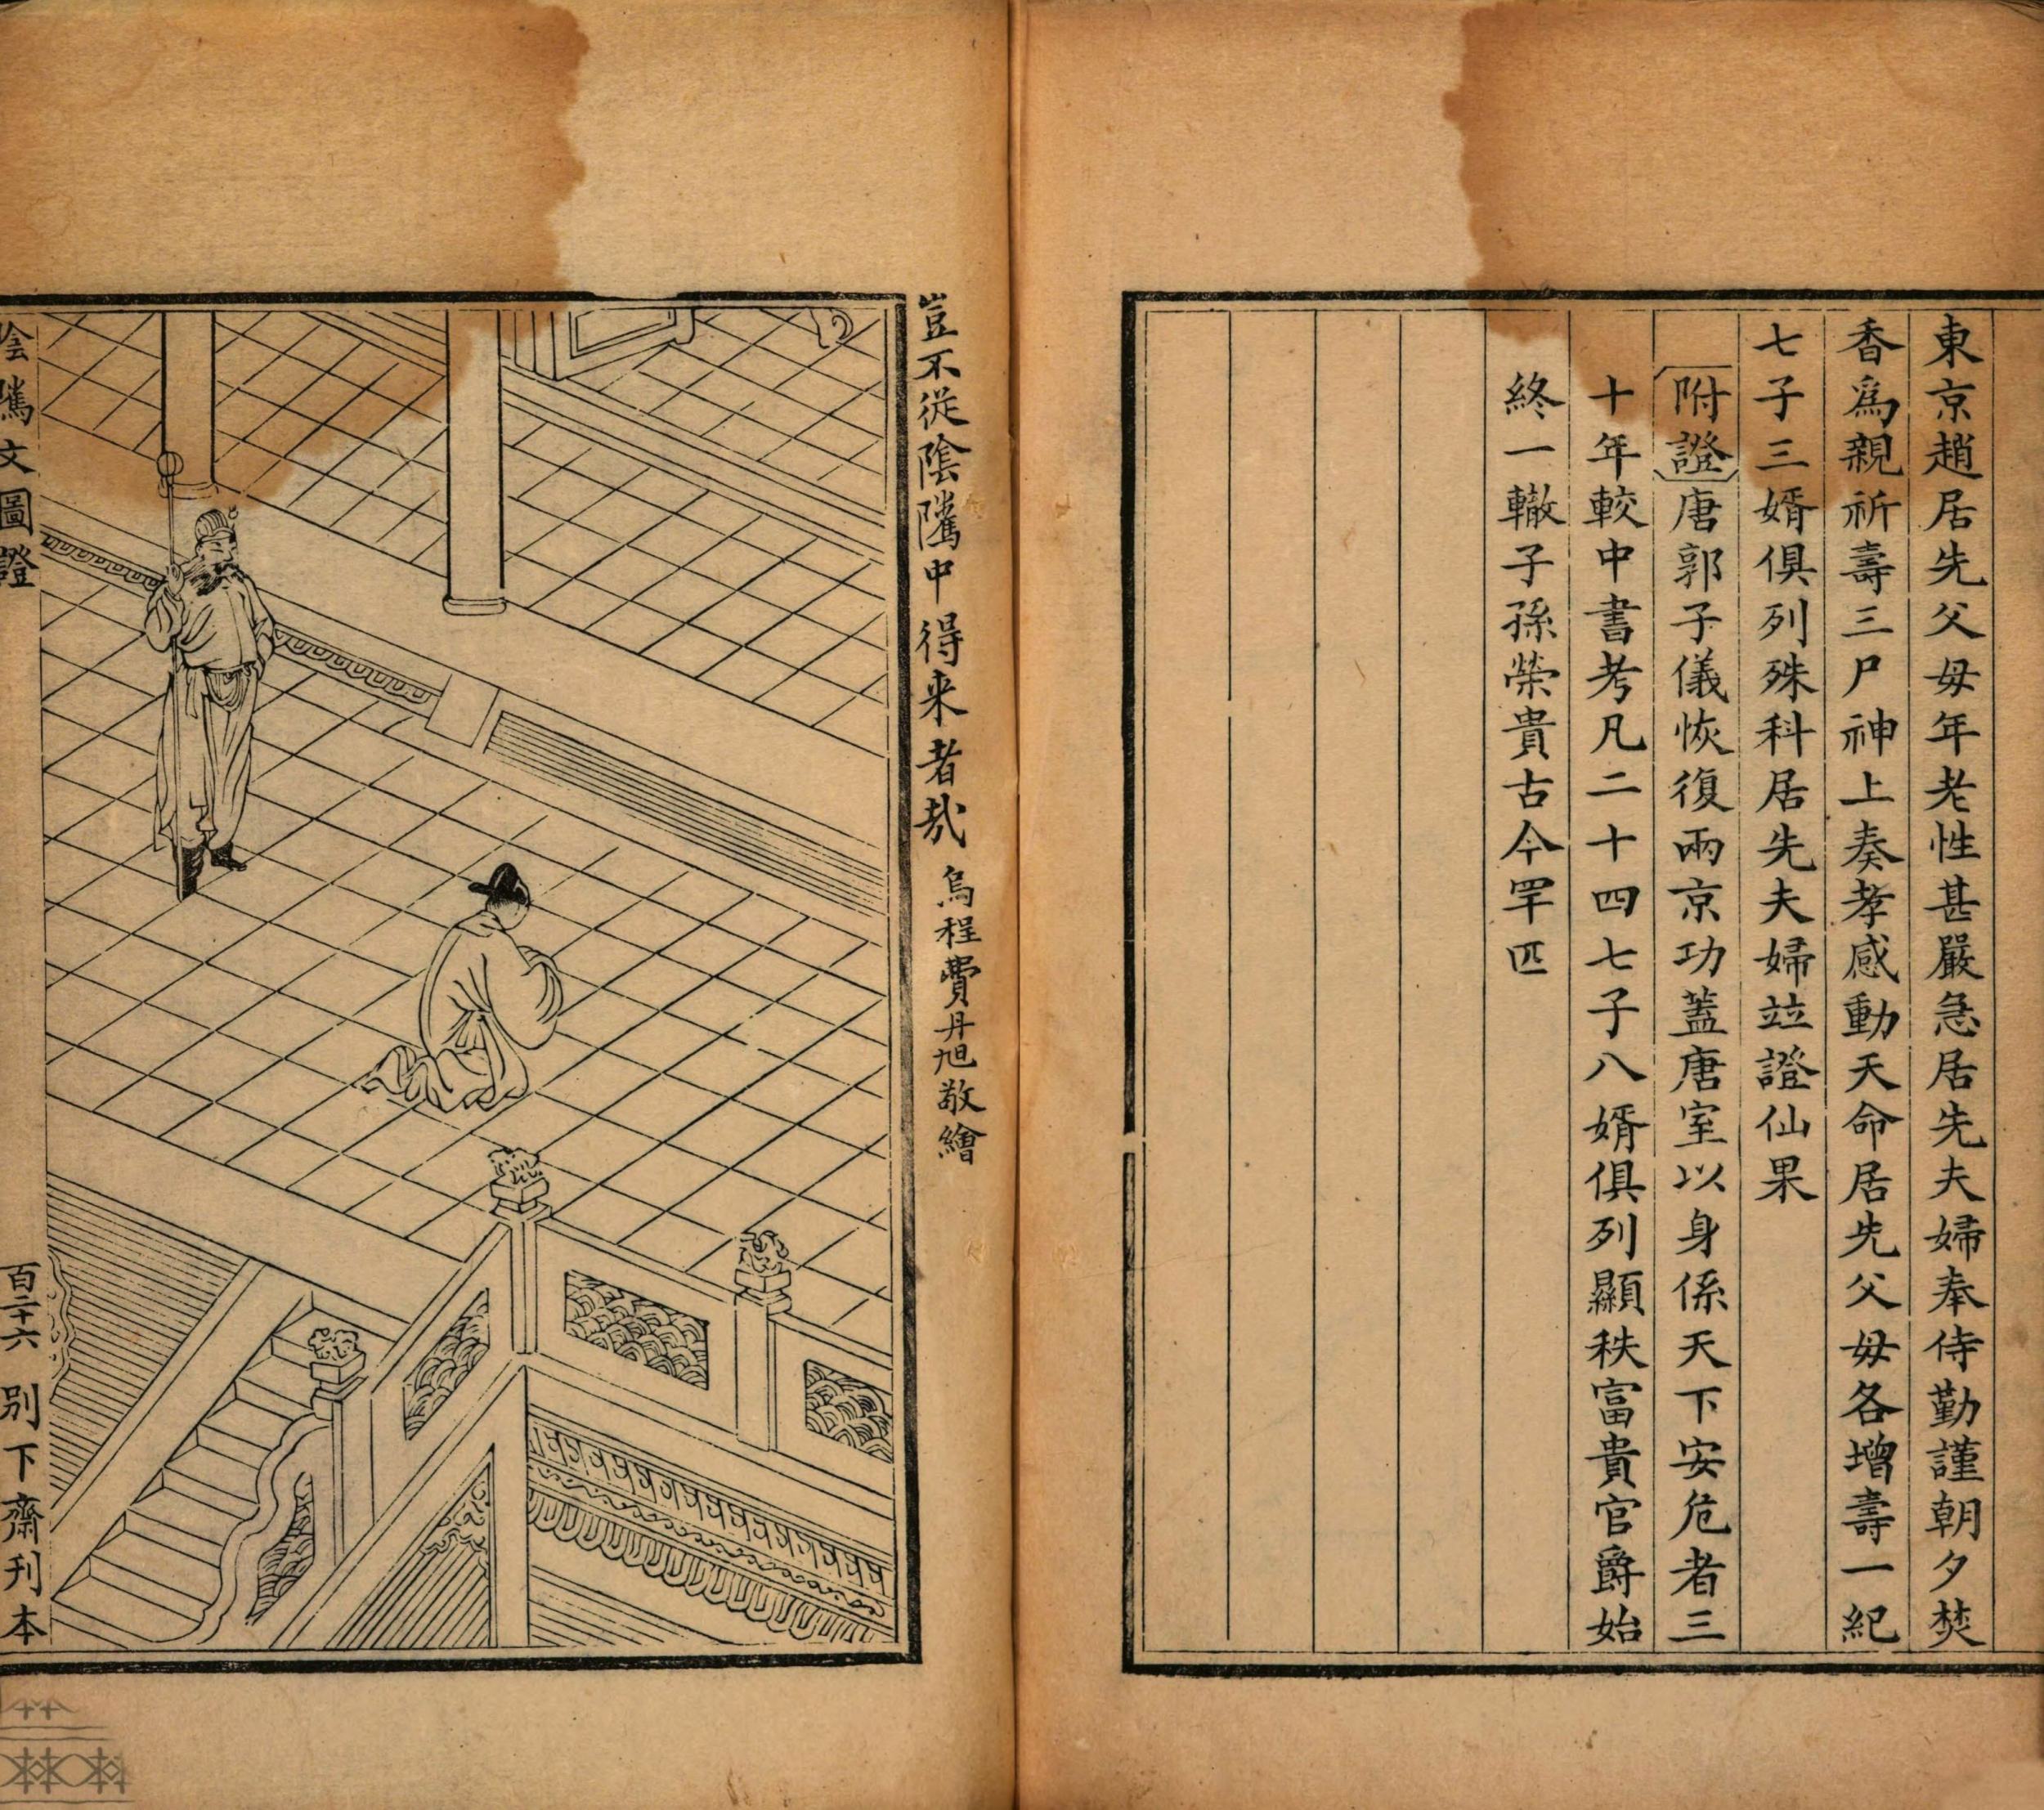 東京趙居先父母年老性甚嚴急居先夫婦奉侍勤謹朝夕焚
香爲親祈壽三尸神上奏孝感動天命居先父母各增壽一紀
七子三婿俱列殊科居先夫婦竝證仙果
附證唐郭子儀恢復兩京功蓋唐室以身係天下安危者三
十年較中書考凡二十四七子八婿俱列顯秩富貴官爵始
終一轍子孫榮貴古今罕匹
豈不從陰騭中得来者哉 烏程費丹旭敬繪
陰騭文圖證 百二十六 别下齋刋本